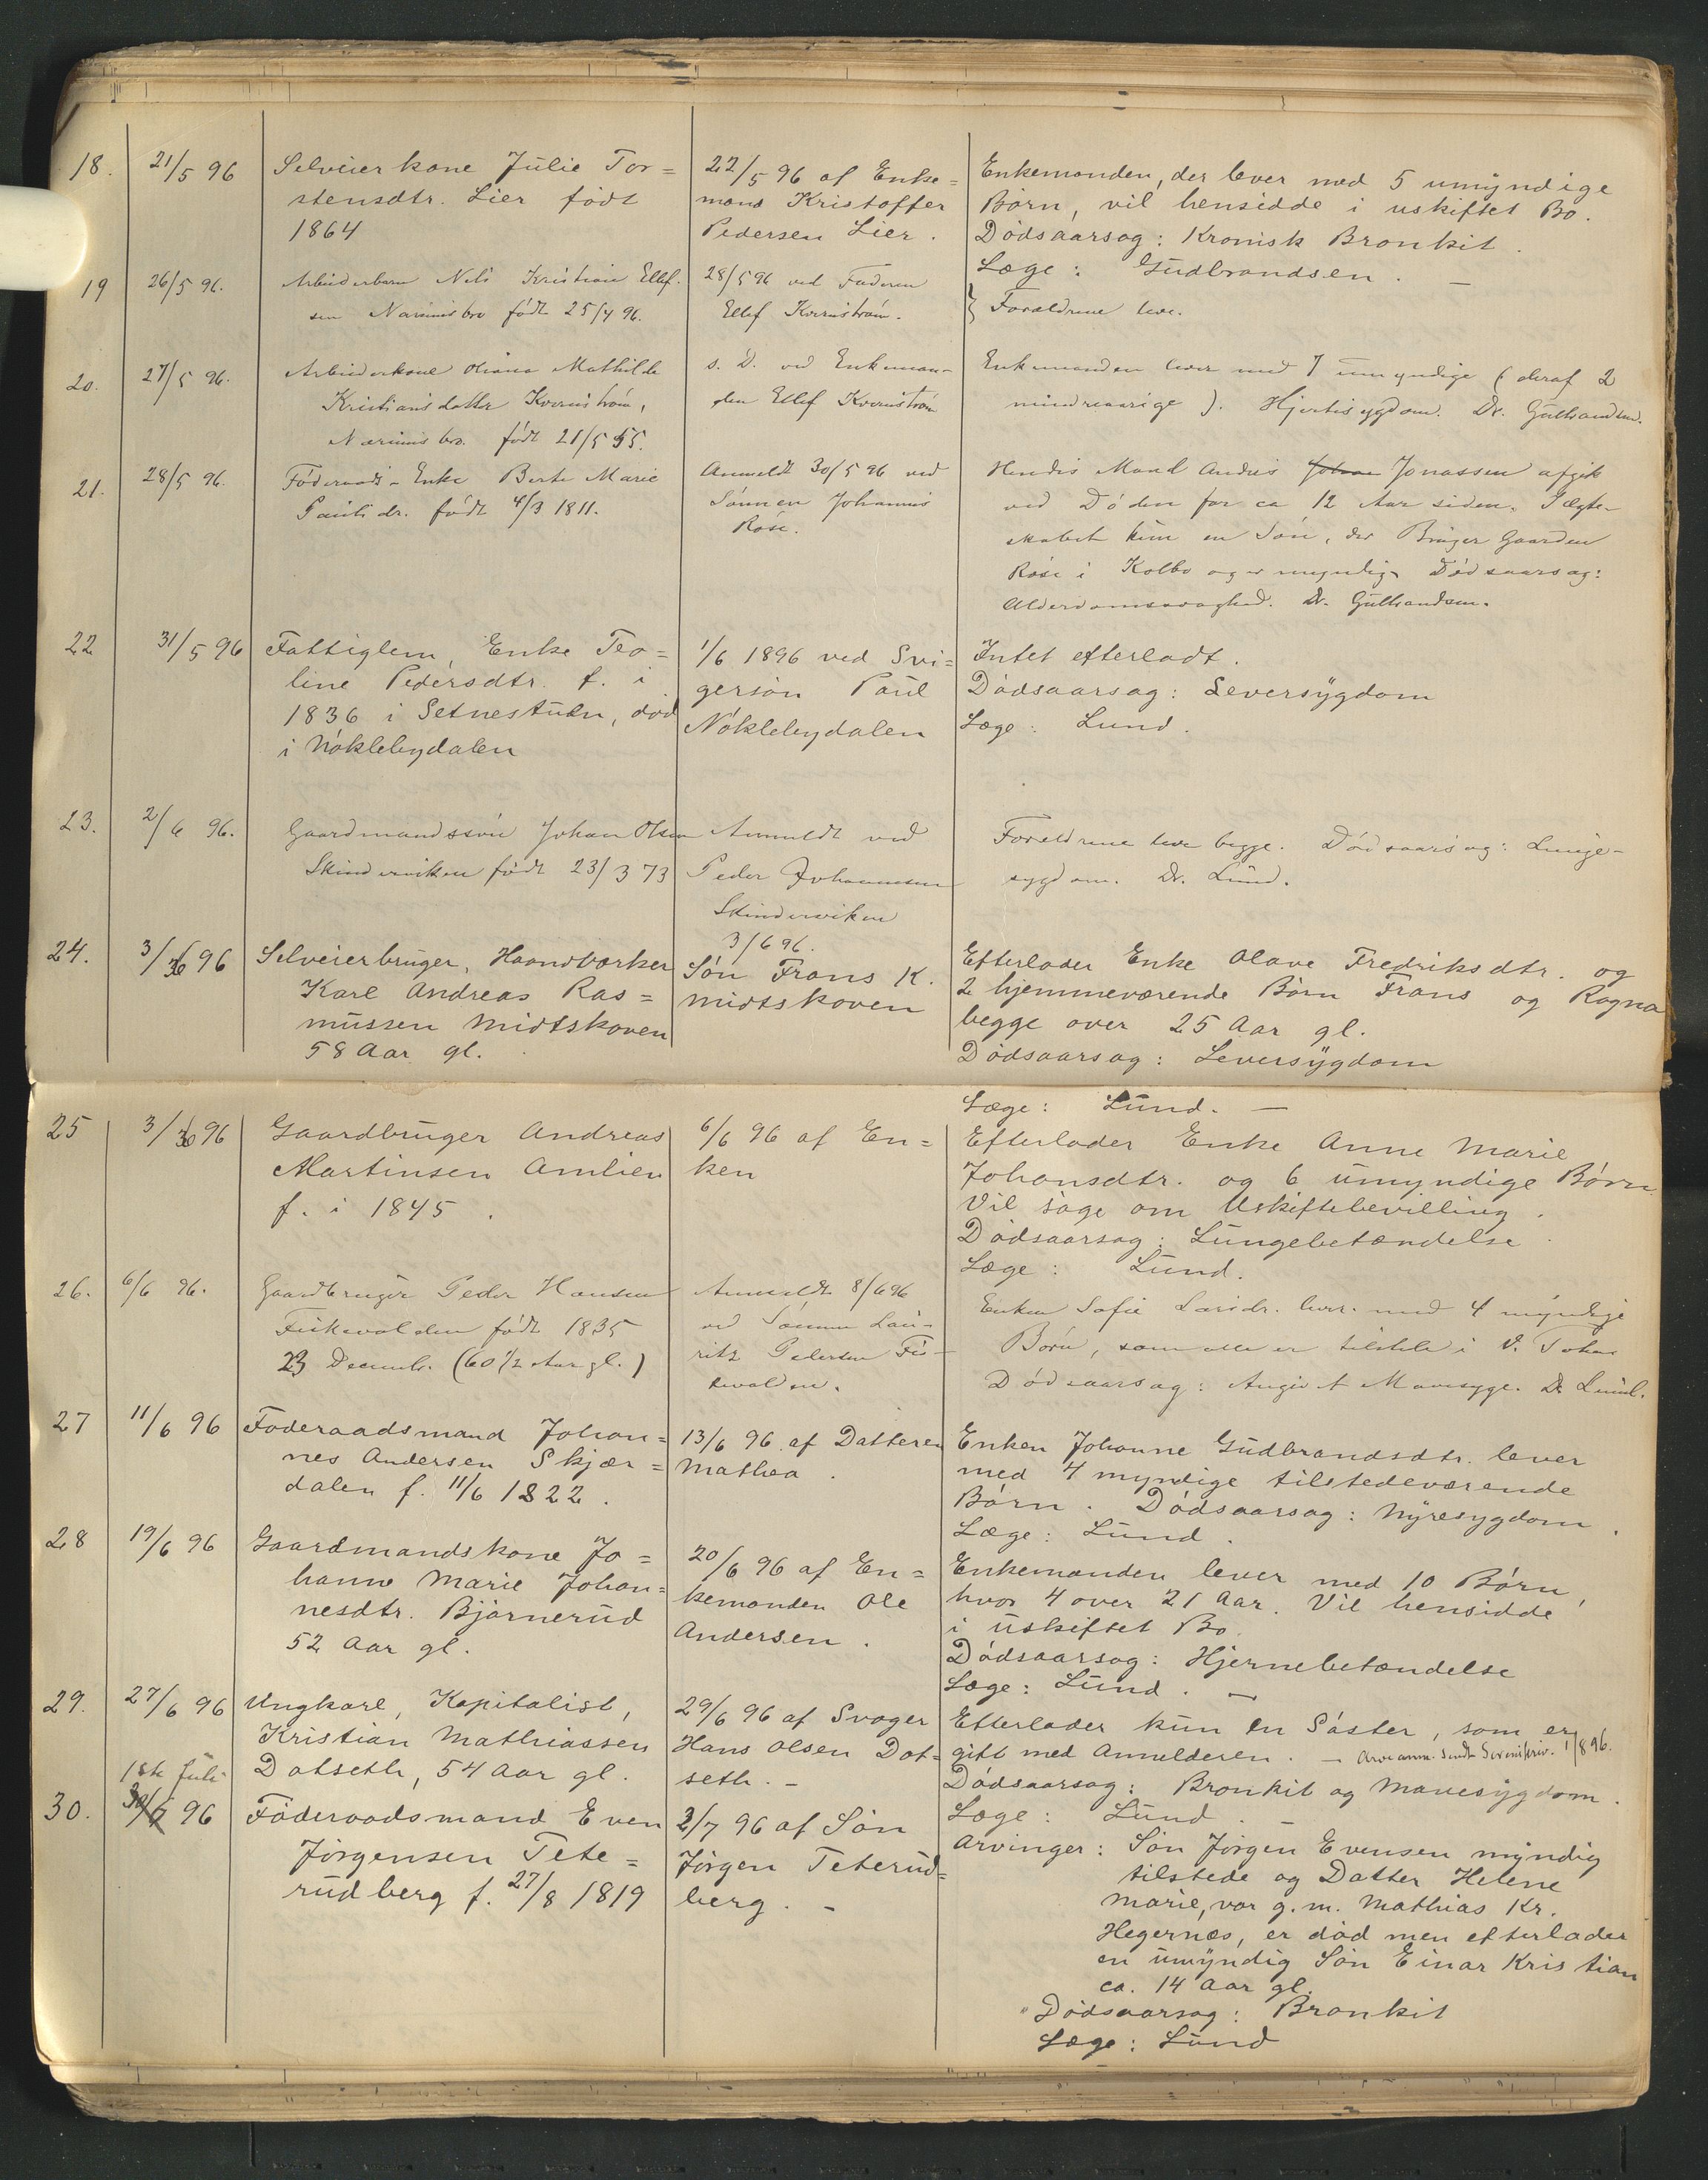 18. 21/5 96 Selveierkone Julie Tor= 22/5 96 af Enke= Enkemanden, der lever med 5 umyndige
stensdtr. Lier født mand Kristoffer Børn, vil hensidde i uskiftet Bo.
1864 Pedersen Lier. Dødsaarsag: Kronisk Bronkit.
Læge: Gudbrandsen. —
19 26/5 96. Arbeiderbarn Nils Kristian Ellef- 28/5 96 ved Faderen } Forældrene leve.
sen født 25/4 96. Ellef Kvernstrøm.
20. 27/5 96. Arbeiderkone Mathilde s. D. ved Enkeman- Enkemanden lever med 7 umyndige (deraf 2
Kristiansdatter Kvernstrøm, den Ellef Kvernstrøm mindreaarige). Hjertesygdom. Dr. Gulbrandsen.
født 21/5 55.
21. 28/5 96. Føderaads-Enke Berte Marie Anmeldt 30/5 96 ved Hendes Mand Andreas Jonassen afgik
Paulsdr. født 4/3 1811. Sønnen Johannes ved Døden for ca 12 Aar siden. I Ægte-
Røse. skabet kun en Søn, der Bruger Gaarden
Røse i Kolbo og er myndig. Dødsaarsag:
Alderdomssvaghed. Dr. Gulbrandsen.
22 31/5 96 Fattiglem, Enke Teo= 1/6 1896 ved Svi= Intet efterladt.
line Pedersdtr. f. i gersøn Paul Dødsaarsag: Leversygdom
1836 i Setnestuen, død Nøklebydalen Læge: Lund.
i Nøklebydalen
23. 2/6 96. Gaardmandssøn Johan Olsen Anmeldt ved Forældrene leve begge. Dødsaarsag: Lunge-
Skinderviken født 23/3 73 Peder Johannesen sygdom. Dr. Lund.
Skinderviken
3/6 96.
24. 3/6 96 Selveierbruger, Haandværker Søn Frans K. Efterlader Enke Olave Fredriksdtr. og
Karl Andreas Ras= Midtskoven 2 hjemmeværende Børn Frans og Ragna
mussen Midtskoven begge over 25 Aar gl.
58 Aar gl. Dødsaarsag: Leversygdom
Læge: Lund. —
25 3/6 96 Gaardbruger Andreas 6/6 96 af En= Efterlader Enke Anne Marie
Martinsen Amlien ken Johansdtr. og 6 umyndige Børn
f. i 1845. Vil søge om Uskiftebevilling.
Dødsaarsag: Lungebetændelse.
Læge: Lund.
26. 6/6 96. Gaardbruger Peder Hansen Anmeldt 8/6 96 Enken Sofie Larsdr. lever med 4 myndige
Fiskevolden født 1835 ved Sønnen Lau- Børn, som alle er tilstede i V. Toten
23 Decembr. (60 1/2 Aar gl.) ritz Pedersen Fis- Dødsaarsag: Angivet Mavesyge. Dr. Lund.
kevolden.
27 11/6 96 Føderaadsmand Johan= 13/6 96 af Datteren Enken Johanne Gudbrandsdtr. lever
nes Andersen Skjær= Mathea. med 4 myndige tilstedeværende
dalen f. 11/6 1822. Børn. Dødsaarsag: Nyresygdom.
Læge: Lund.
28 19/6 96 Gaardmandskone Jo= 20/6 96 af En= Enkemanden lever med 10 Børn,
hanne Marie Johan= kemanden Ole hvor 4 over 21 Aar. Vil hensidde
nesdtr. Bjørnerud Andersen. i uskiftet Bo.
52 Aar gl. Dødsaarsag: Hjernebetændelse
Læge: Lund. —
29. 27/6 96 Ungkarl, Kapitalist, 29/6 96 af Svoger Efterlader kun en Søster, som er
Kristian Mathiassen Hans Olsen Dat= gift med Anmelderen. — Arveanm. sendt Sorenskriv. 1/8 96.
Datseth, 54 Aar gl. seth. — Dødsaarsag: Bronkit og Mavesygdom.
Læge: Lund. —
1ste Juli
30. 96 Føderaadsmand Even 2/7 96 af Søn Arvinger: Søn Jørgen Evensen myndig
Jørgensen Tete= Jørgen Teterud= tilstede og Datter Helene
rudberg f. 27/8 1819 berg. — Marie, var g. m. Mathias Kr.
Hegernæs, er død men efterlader
en umyndig Søn Einar Kristian
ca. 14 Aar gl.
Dødsaarsag: Bronkit
Læge: Lund